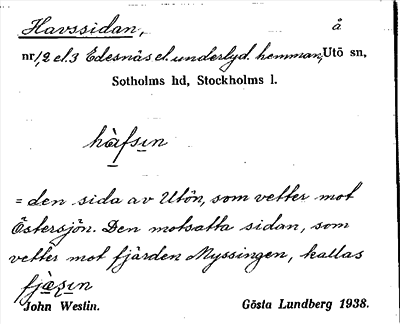 Havssidan, å
nr 1,2 el. 3 Edesnäs el. underlyd. hemman, Utö sn,
Sotholms hd, Stockholms l.
hàfsın
= den sida av Utön, som vetter mot
Östersjön. Den motsatta sidan, som
vetter mot fjärden Myssingen, kallas
John Westin. Gösta Lundberg 1938.